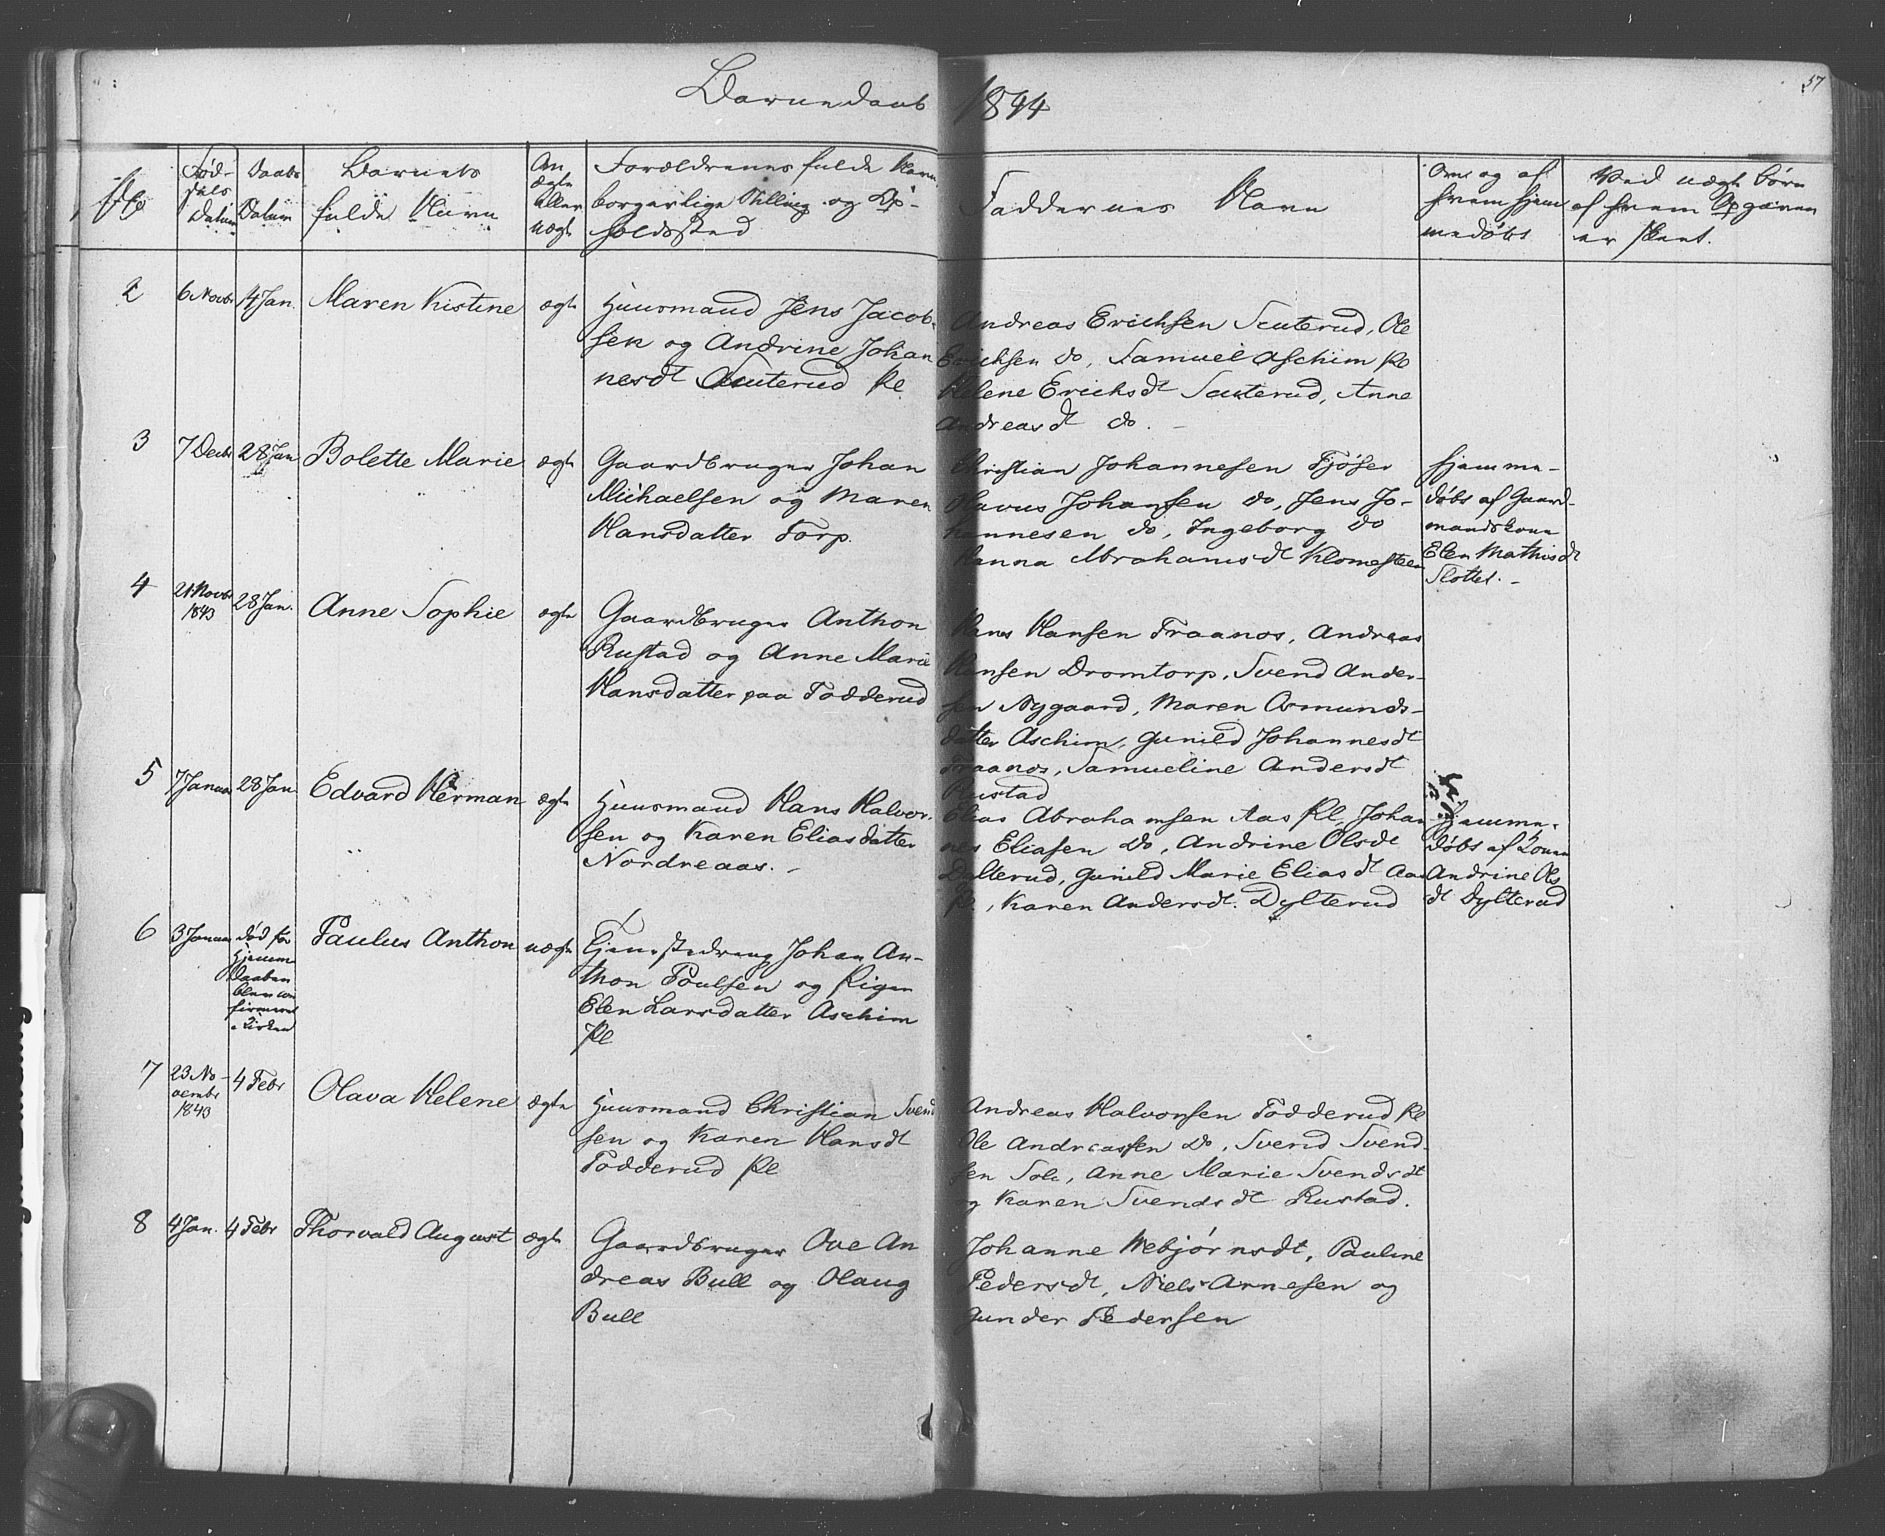 Barnedaab 1844
57
No
Fød-
sels
Datum
Daabs
Datum
Barnets
fulde Navn
Om
ægte
eller
uægte
Forældrenes fulde Navn
borgerlige Stilling og Op-
holdssted
Faddernes Navn
Om og af
hvem hjem
medøbt
Ved uægte børn
af hvem Opgaven
er skeet.
2
6 Novbr
14 Jan.
Maren Kistine
ægte
Huusmand Jens Jacob-
sen og Andrine Johan
nesdt Sauterud Pl
Andreas Erichsen Sauterud, Ole
Erichsen do, Samuel Aschim Pl
Helene Ericksdt Sauterud, Anne
Andreasdt do. -
3
7 Decbr
28 Jan
Bolette Marie
ægte
Gaardbruger Johan
Michaelsen og Maren
Hansdatter Torp.
Christian Johannesen Fjøser
Olavus Johansen do, Jens Jo-
hannesen do, Ingeborg do
Hanna Abrahamsdt Klomesteen
Hjemme-
døbt af Gaard-
mandskone
Elen Mathisdt
Slottet. -
4
21 Novbr
1843
28 Jan.
Anne Sophie
ægte
Gaardbruger Anthon
Rustad og Anne Marie
Hansdatter paa Fodderud
Hans Hansen Traanos, Andreas
Hansen Dromtorp, Svend Ander-
sen Nygaard, Maren Asmunds-
datter Aschim, Gunild Johannesdt
Traanos, Samueline Andersdt
Rustad
5
7 Januar
28 Jan
Edvard Herman
ægte
Huusmand Hans Halvor-
sen og Karen Eliasdatter
Nordreaas. -
Elias Abrahamsen Aas Pl, Johan
nes Eliasen do, Andrine Olsdt
Dylterud, Gunild Marie Eliasdt Aas
Pl., Karen Andersdt. Dylterud
Hjemme-
døbt af Konen
Andrine Ols
dt Dylterud
6
3 Januar
død før
Hjemme
Daaben
blev con
firmeret
i Kirken
Paulus Anthon
uægte
Tjenestedreng Johan An-
thon Poulsen og Pigen
Elen Larsdatter Aschim
Pl
7
23 No-
vembr
1843
4 Febr
Olava Helene
ægte
Huusmand Christian Svend
sen og Karen Hansdt
Fodderud Pl
Andreas Halvorsen Fodderud Pl
Ole Andreassen do, Svend Svend-
sen Solv, Anne Marie Svendsdt
og Karen Svendsdt Rustad.
8
4 Jan.
4 Febr
Thorvald August
ægte
Gaardbruger Ove An
dreas Bull og Olaug
Bull
Johanne Webjørnsdt, Pauline
Pedersdt, Niels Arnesen og
Gunder Pedersen